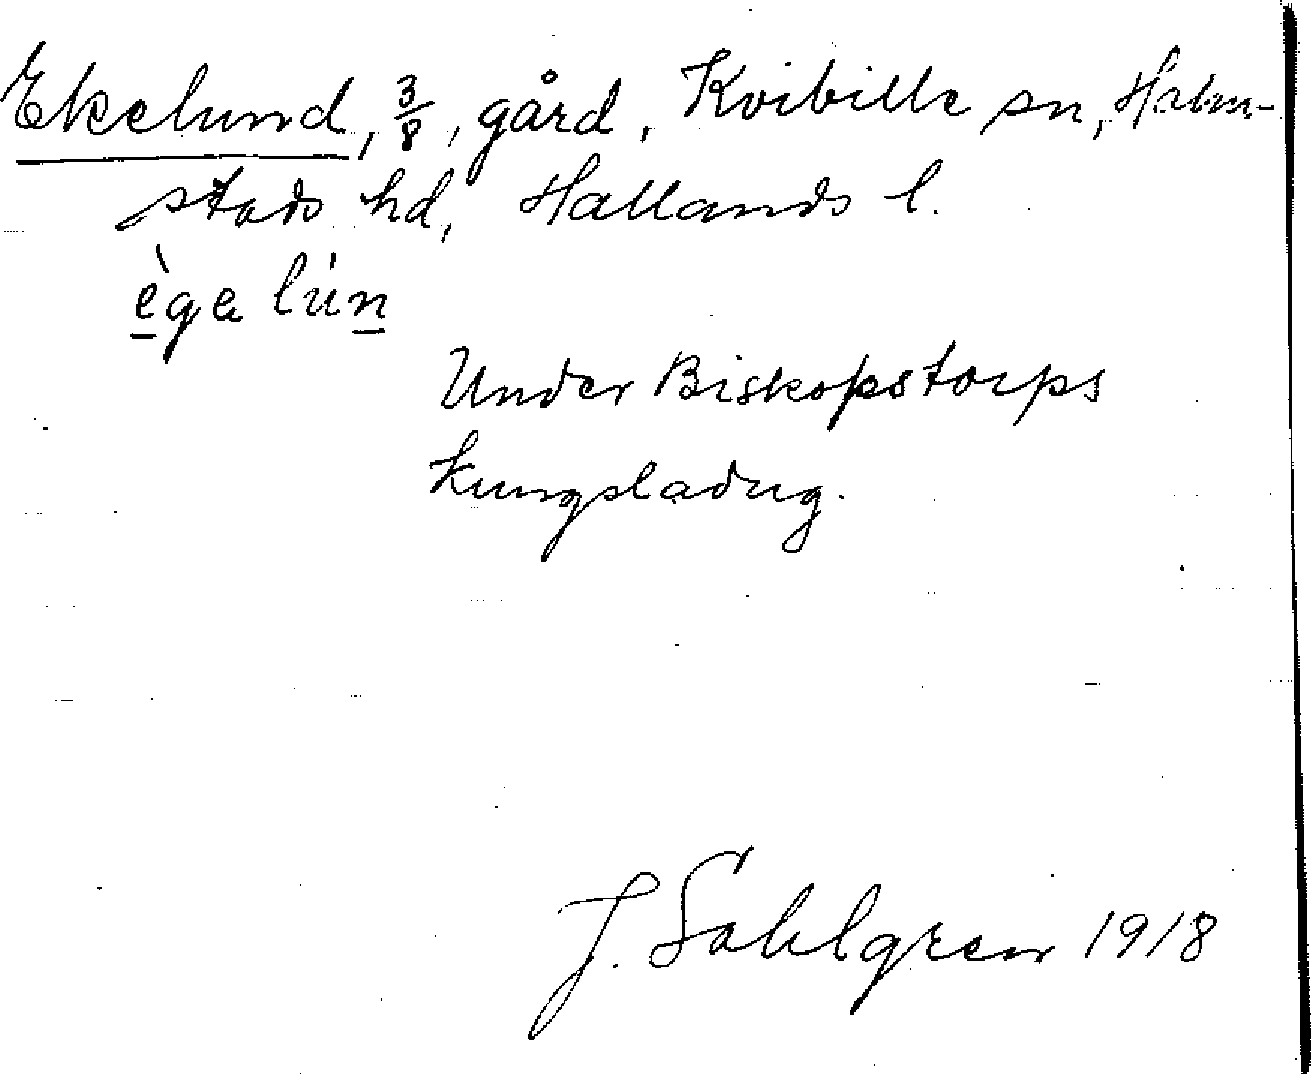 Ekelund, 3/8, gård, Kvibille sn, Halm-
stads hd, Hallands l.
è̲gɐ lún̲
Under Biskopstorps
Kungsladug.
J. Sahlgren 1918